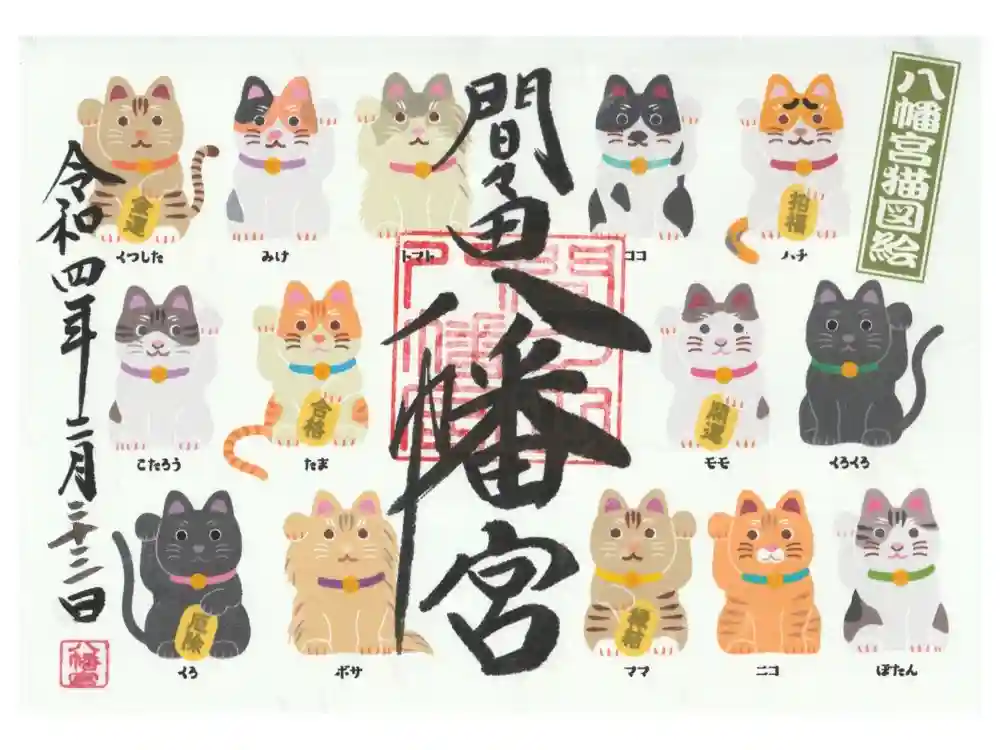 八幡宮猫図絵
間々田八幡宮
令和四年二月二十二日
八幡宮
金運
招福
くつした
みけ
トマト
ココ
ハチ
合格
開運
こたろう
たま
モモ
くろくろ
厄除
縁結
くろ
ボサ
ママ
ニコ
ぼたん